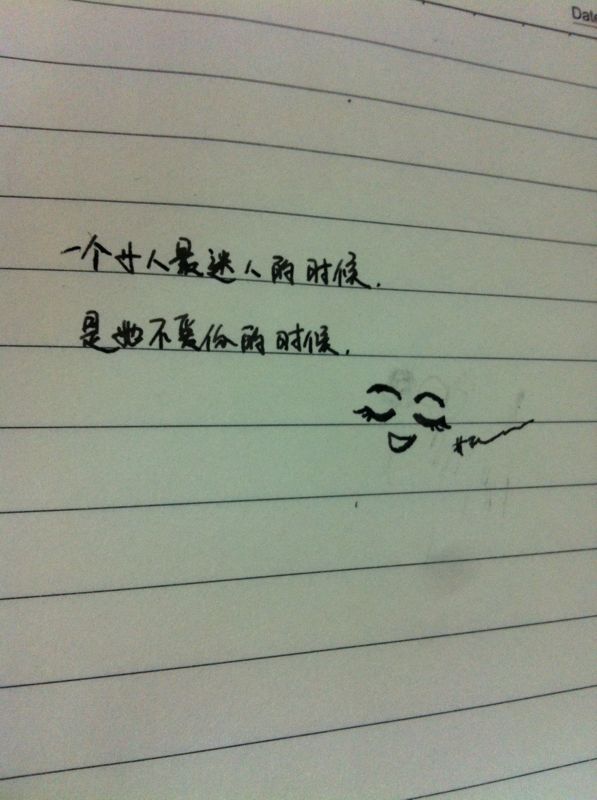 Date
一个女人最迷人的时候.
是她不爱你的时候.